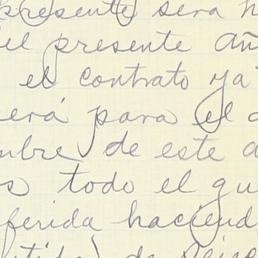 presente será h
el presente añ
el contrato ya
erá para el a
mbre de este a
s todo el qu
ferida haciend